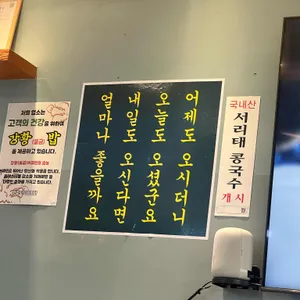 저희 업소는
고객의 건강을 위하여
강황(울금)밥
을 제공하고 있습니다.
어제도 오시더니
오늘도 오셨군요
내일도 오신다면
얼마나 좋을까요
국내산
서리태 콩국수
개시